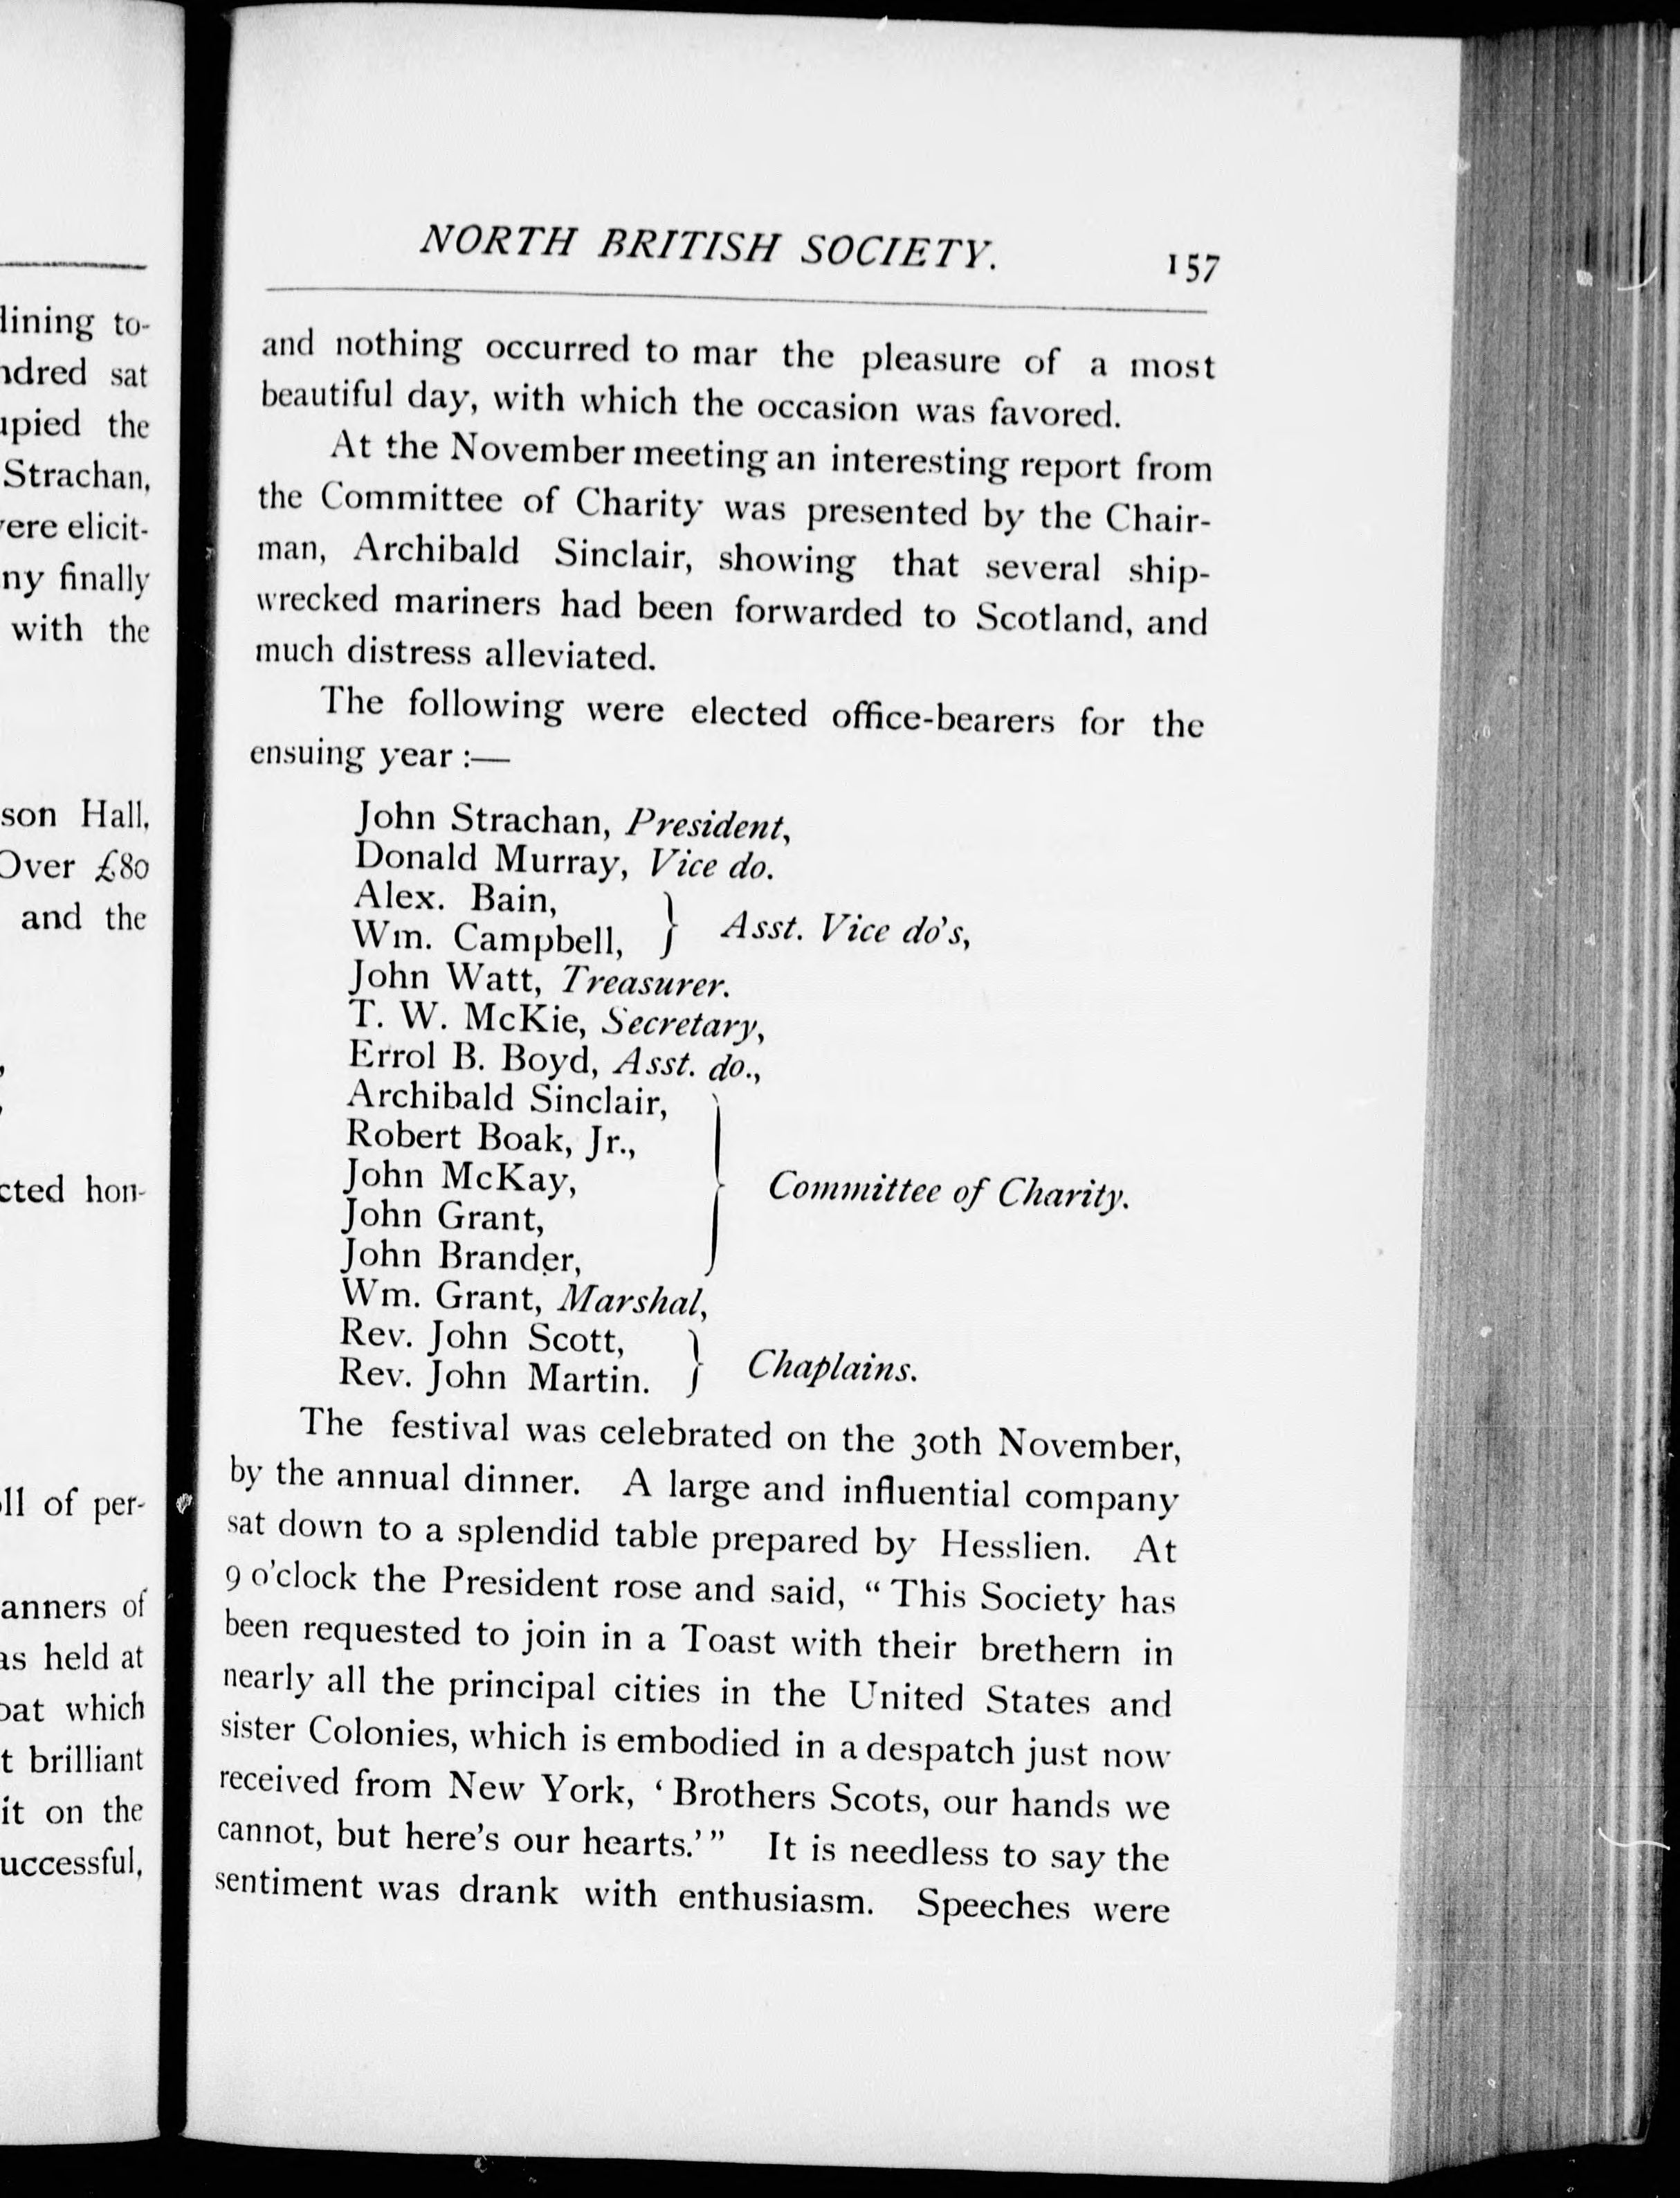 lining to-
ndred sat
upied the
Strachan,
vere elicit-
ny finally
with the
son Hall,
Over £80
and the
cted hon-
ll of per-
anners of
as held at
oat which
t brilliant
it on the
uccessful,
NORTH BRITISH SOCIETY. 157
and nothing occurred to mar the pleasure of a most
beautiful day, with which the occasion was favored.
At the November meeting an interesting report from
the Committee of Charity was presented by the Chair-
man, Archibald Sinclair, showing that several ship-
wrecked mariners had been forwarded to Scotland, and
much distress alleviated.
The following were elected office-bearers for the
ensuing year :—
John Strachan, President,
Donald Murray, Vice do.
Alex. Bain,
Wm. Campbell, } Asst. Vice do's,
John Watt, Treasurer.
T. W. McKie, Secretary,
Errol B. Boyd, Asst. do.,
Archibald Sinclair,
Robert Boak, Jr.,
John McKay, } Committee of Charity.
John Grant,
John Brander,
Wm. Grant, Marshal,
Rev. John Scott,
Rev. John Martin. } Chaplains.
The festival was celebrated on the 30th November,
by the annual dinner. A large and influential company
sat down to a splendid table prepared by Hesslien. At
9 o'clock the President rose and said, “ This Society has
been requested to join in a Toast with their brethern in
nearly all the principal cities in the United States and
sister Colonies, which is embodied in a despatch just now
received from New York, ‘ Brothers Scots, our hands we
cannot, but here's our hearts.’ ” It is needless to say the
sentiment was drank with enthusiasm. Speeches were